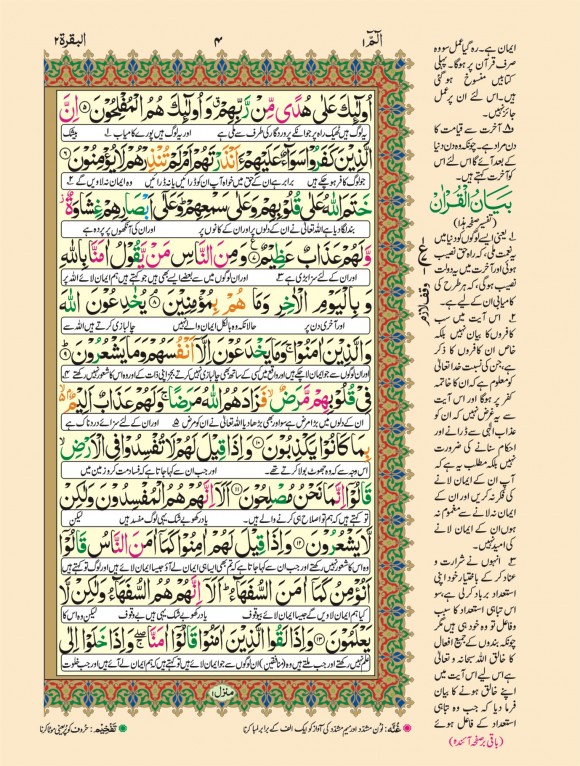 الٓمّٓ ١
٤
البقرة ٢
اُولٰٓئِكَ عَلٰى هُدًى مِّنْ رَّبِّهِمْ ۗ وَاُولٰٓئِكَ هُمُ الْمُفْلِحُوْنَ ۝٥ اِنَّ
یہ لوگ ہیں ٹھیک راہ پر جو انکے پروردگار کی طرف سے ملی ہے اور یہ لوگ ہیں پورے کامیاب بیشک
الَّذِيْنَ كَفَرُوْا سَوَآءٌ عَلَيْهِمْ ءَاَنْذَرْتَهُمْ اَمْ لَمْ تُنْذِرْهُمْ لَا يُؤْمِنُوْنَ ۝٦
جو لوگ کافر ہو چکے ہیں برابر ہے ان کے حق میں خواہ آپ ان کو ڈرائیں یا نہ ڈرائیں وہ ایمان نہ لاویں گے
خَتَمَ اللّٰهُ عَلٰى قُلُوْبِهِمْ وَعَلٰى سَمْعِهِمْ ۗ وَعَلٰٓى اَبْصَارِهِمْ غِشَاوَةٌ
بند لگا دیا ہے اللہ تعالیٰ نے ان کے دلوں پر اور ان کے کانوں پر اور ان کی آنکھوں پر پردہ ہے
وَّلَهُمْ عَذَابٌ عَظِيْمٌ ۝٧ وَمِنَ النَّاسِ مَنْ يَّقُوْلُ اٰمَنَّا بِاللّٰهِ
اور ان کے لئے سزا بڑی ہے اور ان لوگوں میں سے بعضے ایسے بھی ہیں جو کہتے ہیں ہم ایمان لائے اللہ پر
وَ بِالْيَوْمِ الْاٰخِرِ وَمَا هُمْ بِمُؤْمِنِيْنَ ۝٨ يُخٰدِعُوْنَ اللّٰهَ
اور آخری دن پر حالانکہ وہ بالکل ایمان والے نہیں چالبازی کرتے ہیں اللہ سے
وَالَّذِيْنَ اٰمَنُوْا ۚ وَمَا يَخْدَعُوْنَ اِلَّآ اَنْفُسَهُمْ وَمَا يَشْعُرُوْنَ ۝٩
فِيْ قُلُوْبِهِمْ مَّرَضٌ ۙ فَزَادَهُمُ اللّٰهُ مَرَضًا ۚ وَلَهُمْ عَذَابٌ اَلِيْمٌ
ان کے دلوں میں بڑا مرض ہے سو اور بھی بڑھا دیا اللہ تعالیٰ نے ان کو مرض اور ان کے لئے سزائے دردناک ہے
بِمَا كَانُوْا يَكْذِبُوْنَ ۝١٠ وَاِذَا قِيْلَ لَهُمْ لَا تُفْسِدُوْا فِى الْاَرْضِ
اس وجہ سے کہ وہ جھوٹ بولا کرتے تھے۔ اور جب ان سے کہا جاتا ہے کہ فساد مت کرو زمین میں
قَالُوْٓا اِنَّمَا نَحْنُ مُصْلِحُوْنَ ۝١١ اَلَآ اِنَّهُمْ هُمُ الْمُفْسِدُوْنَ وَلٰكِنْ
تو کہتے ہیں کہ ہم تو اصلاح ہی کرنے والے ہیں۔ یاد رکھو بے شک یہی لوگ مفسد ہیں لیکن
لَّا يَشْعُرُوْنَ ۝١٢ وَاِذَا قِيْلَ لَهُمْ اٰمِنُوْا كَمَآ اٰمَنَ النَّاسُ قَالُوْٓا
اَنُؤْمِنُ كَمَآ اٰمَنَ السُّفَهَآءُ ۗ اَلَآ اِنَّهُمْ هُمُ السُّفَهَآءُ وَلٰكِنْ لَّا
کیا ہم ایمان لاویں گے جیسا ایمان لائے بیوقوف یاد رکھو بے شک یہی ہیں بے وقوف لیکن وہ اس کا
يَعْلَمُوْنَ ۝١٣ وَاِذَا لَقُوا الَّذِيْنَ اٰمَنُوْا قَالُوْٓا اٰمَنَّا ۖ وَاِذَا خَلَوْا اِلٰى
منزل ١
ایمان ہے۔ رہ گیا عمل سو وہ
صرف قرآن پر ہوگا۔ پہلی
کتابیں منسوخ ہو گئی
ہیں۔ اس لئے ان پر عمل
جائز نہیں۔
۵ آخرت سے قیامت کا
دن مراد ہے۔ چونکہ وہ دن دنیا
کے بعد آئے گا اس لئے اس
کو آخرت کہتے ہیں۔
بیان القرآن
(تفسیر صفحہ ہذا)
۱ یعنی ایسے لوگوں کو دنیا میں
یہ نعمت ملی، کہ راہ حق نصیب
ہوئی اور آخرت میں یہ دولت
نصیب ہوگی، کہ ہر طرح کی
کامیابی ان کے لیے ہے۔
۲ اس آیت میں سب
کافروں کا بیان نہیں بلکہ
خاص ان کافروں کا ذکر
ہے، جن کی نسبت خدا تعالیٰ
کو معلوم ہے کہ ان کا خاتمہ
کفر پر ہوگا اور اس آیت
سے یہ غرض نہیں کہ ان کو
عذاب الٰہی سے ڈرانے اور
احکام سنانے کی ضرورت
نہیں بلکہ مطلب یہ ہے کہ
آپ ان کے ایمان لانے
کی فکر نہ کریں اور ان کے
ایمان نہ لانے سے مغموم نہ
ہوں ان کے ایمان لانے
کی امید نہیں۔
۳ انہوں نے شرارت و
عناد کر کے باختیار خود اپنی
استعداد برباد کر لی ہے، سو
اس تباہی استعداد کا سبب
و فاعل تو وہ خود ہی ہیں مگر
چونکہ بندوں کے جمیع افعال
کا خالق اللہ سبحانہ و تعالیٰ
ہے اس لیے اس آیت میں
اپنے خالق ہونے کا بیان
فرما دیا کہ جب وہ تباہی
استعداد کے فاعل ہوئے
(باقی بر صفحہ آئندہ)
وقف لازم
غُنّہ: نون مشدّد اور میم مشدّد کی آواز کو ایک الف کے برابر لمبا کرنا
تفخیم: حروف کو پُر یعنی موٹا کرنا